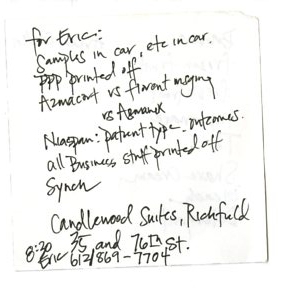 for Eric:
Samples in car, etc in car.
PPP printed off
Azmacort vs flovent msging
vs Asmanex
Niaspan: patient type - outcomes.
all Business stuff printed off
Synch
Candlewood Suites, Richfield
35 and 76th St.
8:30
Eric 612/869-7704